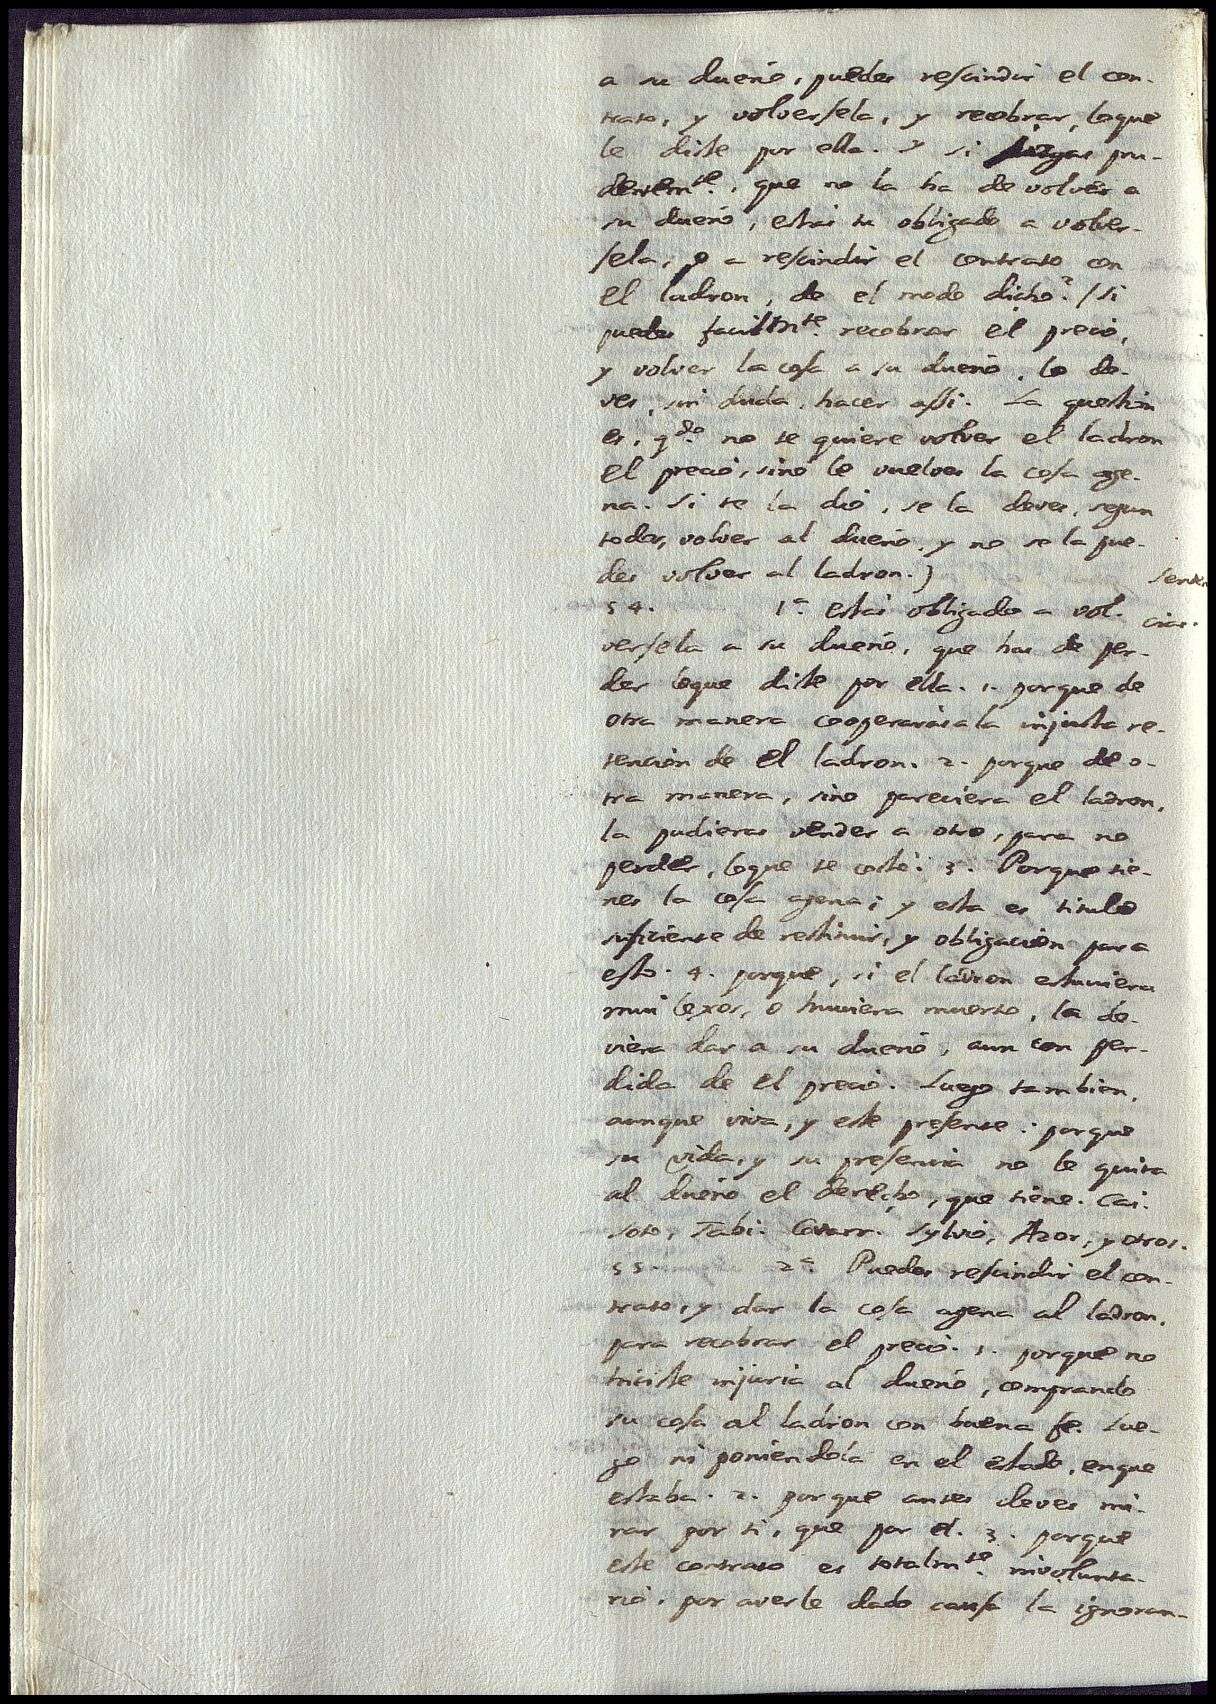 a su dueño, puedes rescindir el con-
trato, y volversela, y recobrar, loque
le diste por ella. y si juzgas pru-
dentemte., que no la ha de volver a
su dueño, estás tu obligado a volver-
sela, o a rescindir el contrato con
el ladron, de el modo dicho? (si
puedes facilmte. recobrar el precio,
y volver la cosa a su dueño, lo de-
ves, sin duda, hacer assi. La question
es, qdo. no te quiere volver el ladron
el precio, sino le vuelves la cosa age-
na. Si te la dió, se la deves, segun
todos, volver al dueño, y no se la pue-
des volver al ladron.)
Senten
cias.
54. 1a. estás obligado a vol-
versela a su dueño, que has de per-
der loque diste por ella. 1. porque de
otra manera cooperarás a la injusta re-
tencion de el ladron. 2. porque de o-
tra manera, sino pareciera el ladron,
la pudieras vender a otro, para no
perder, loque te costó. 3. Porque tie-
nes la cosa agena; y esta es titulo
suficiente de restituir, y obligacion para
esto. 4. porque, si el ladron estuviera
mui lexos, o huviera muerto, la de-
viera dar a su dueño, aun con per-
dida de el precio. Luego tambien,
aunque viva, y esté presente: porque
su vida, y su presencia no le quita
al dueño el derecho, que tiene. Cai.
Soto, Tabi. Covarr. Sylvio, Azor, y otros.
55. 2a. Puedes rescindir el con-
trato, y dar la cosa agena al ladron,
para recobrar el precio. 1. porque no
hiciste injuria al dueño, comprando
su cosa al ladron con buena fe. Lue-
go ni poniendola en el estado, enque
estaba. 2. porque antes deves mi-
rar por ti, que por el. 3. porque
este contrato es totalmte. involunta-
rio, por averle dado causa la ignoran-